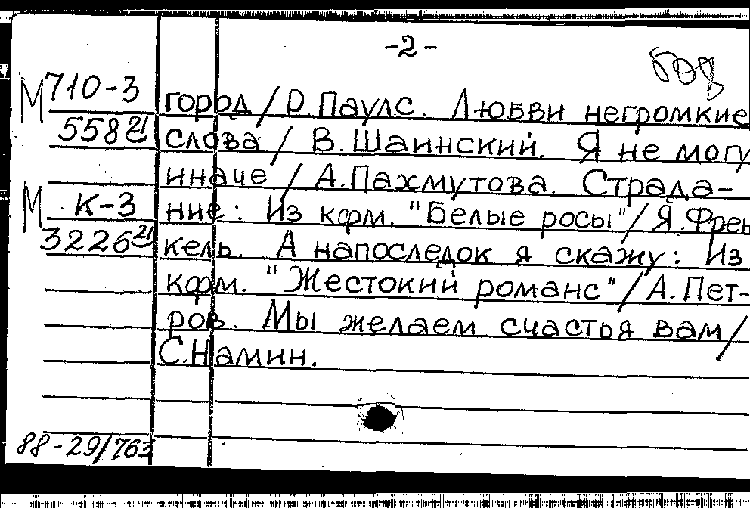 -2-
М 710-3
558 21
М К-3
3226 21
город/Р.Паулс. Любви негромкие
слова/ В.Шаинский. Я не могу
иначе/А.Пахмутова. Страда-
ние: Из к/фм. "Белые росы"/Я.Френ
кель. А напоследок я скажу: Из
к/фм. "Жестокий романс"/А.Пет-
ров. Мы желаем счастья вам/
С.Намин.
88-29/763